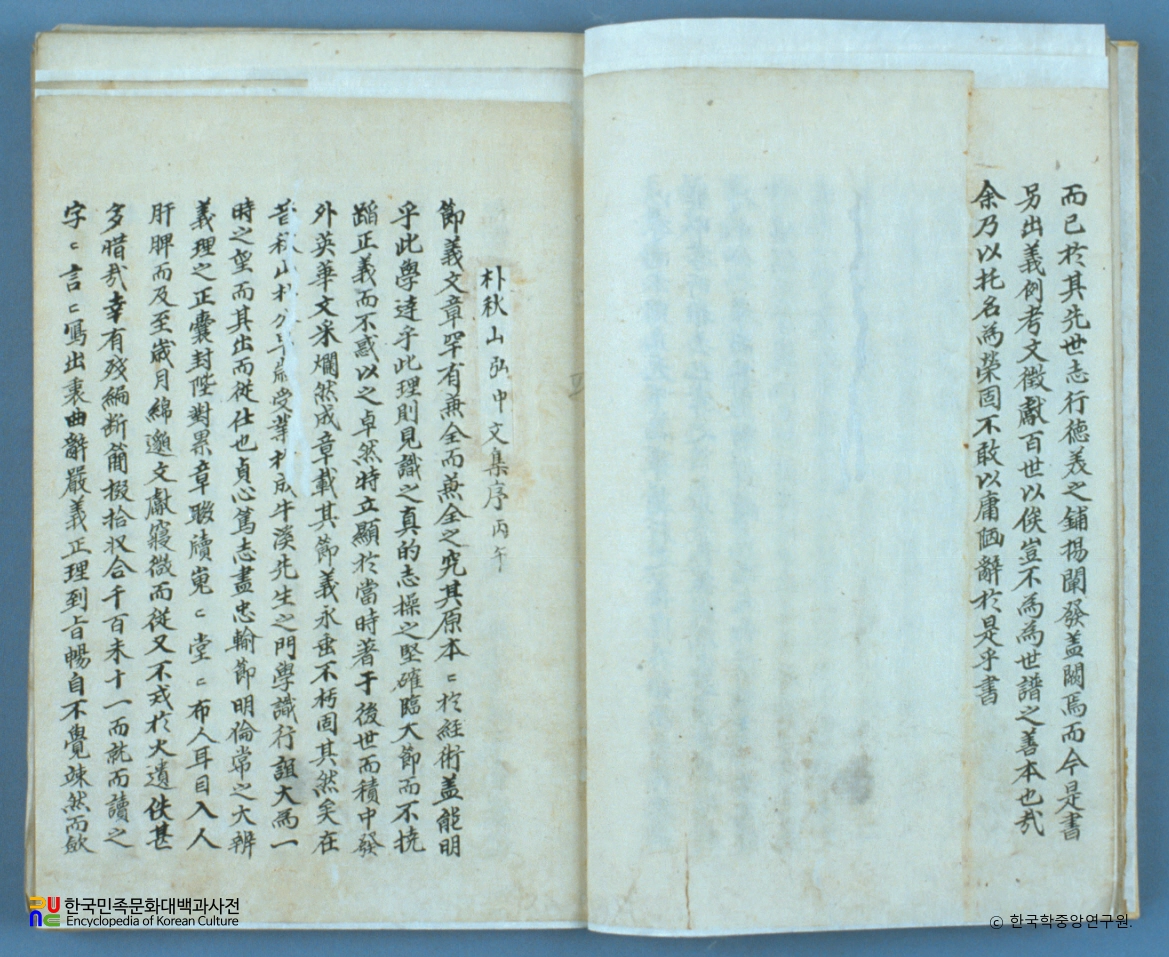 而已於其先世志行德義之鋪揚闡發盖闕焉而今是書
另出義例考文徵獻百世以俟豈不為為世譜之善本也哉
余乃以托名為榮固不敢以庸陋辭於是乎書
朴秋山弘中文集序 丙午
節義文章罕有兼全而兼全之究其原本〻於経術盖能明
乎此學達乎此理則見識之真的志操之堅確臨大節而不撓
蹈正義而不惑以之卓然特立顯於當時著于後世而積中發
外英華文采爛然成章載其節義永垂不朽固其然矣在
昔秋山朴公早歲受業於成牛溪先生之門學識行誼大為一
時之望而其出而從仕也貞心篤志盡忠輸節明倫常之大辨
義理之正囊封陛對累章聯牘嵬〻堂〻布人耳目入人
肝脾而及至歲月綿邈文獻寢微而從又不戒於火遺佚甚
多惜哉幸有殘編斷簡掇拾収合千百未十一而就而讀之
字〻言〻寫出衷曲辭嚴義正理到旨暢自不覺竦然而斂
한국민족문화대백과사전
Encyclopedia of Korean Culture
© 한국학중앙연구원.